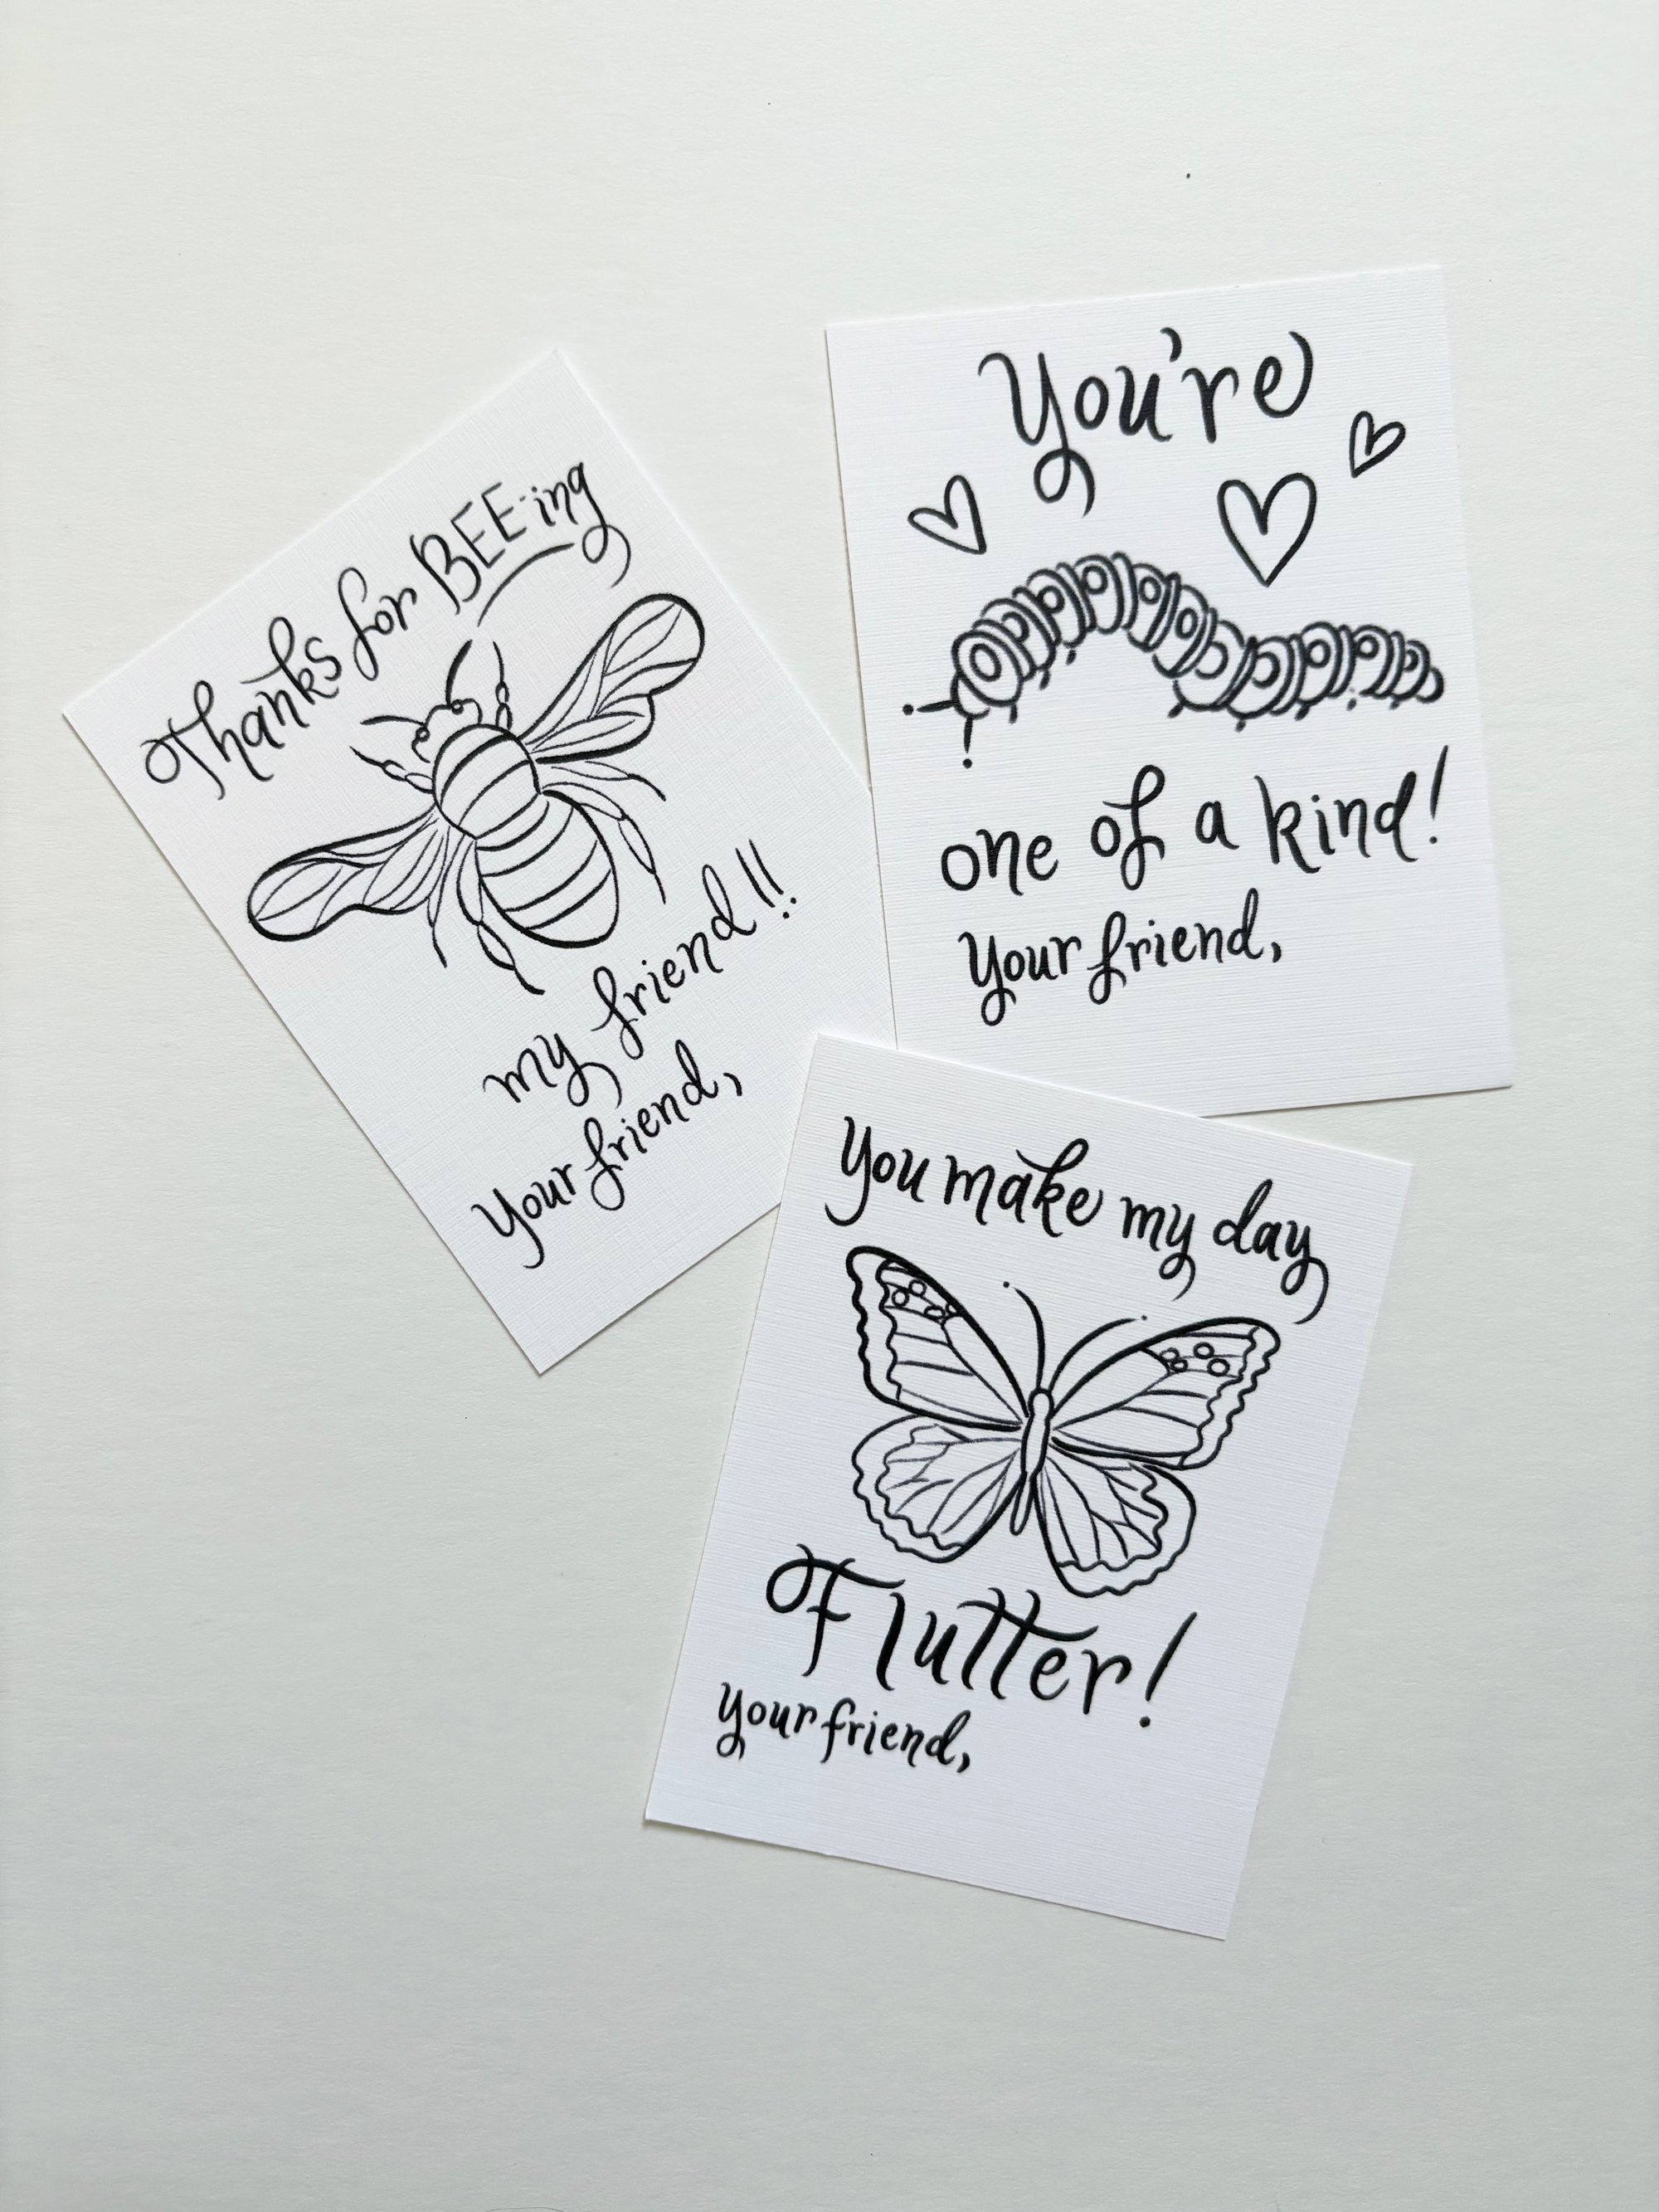 Thanks for BEE-ing
my friend!!
Your friend,
You're
one of a kind!
Your friend,
You make my day
Flutter!
Your friend,